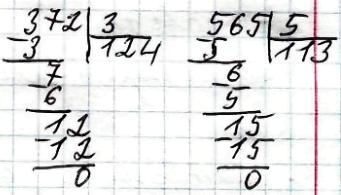 372 | 3
-3 | 124
7
-6
12
-12
0
565 | 5
-5 | 113
6
-5
15
-15
0